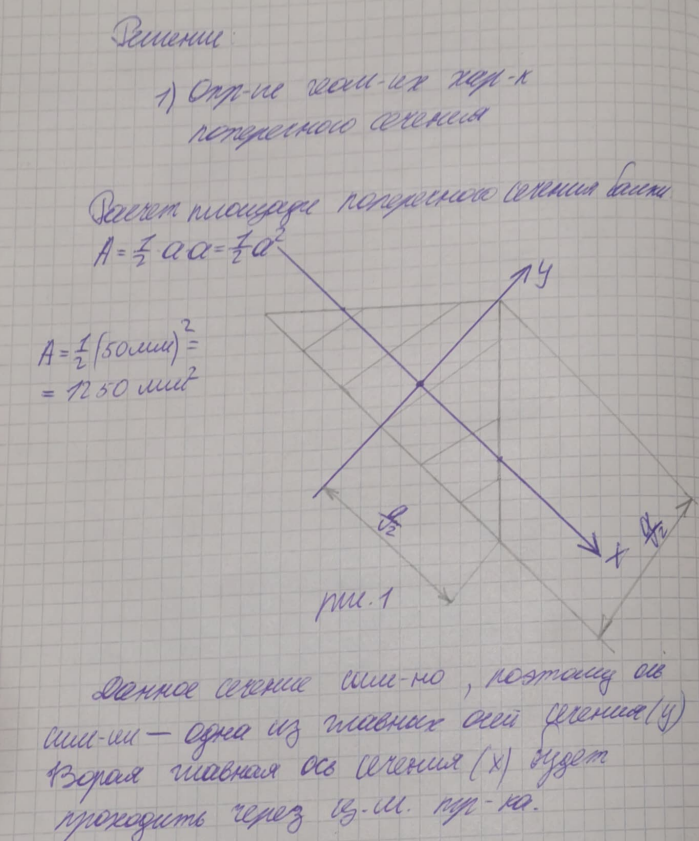 Решение
1) Опр-ие геом-их хар-к
поперечного сечения
Расчет площади поперечного сечения балки
A = 1/2 a a = 1/2 a²
A = 1/2 (50мм)² =
= 1250 мм²
y
a/2
a/2
x
рис. 1
Данное сечение сим-но, поэтому ось
сим-ии — одна из главных осей сечения (y)
Ворая главная ось сечения (x) будет
проходить через ц.м. тр-ка.